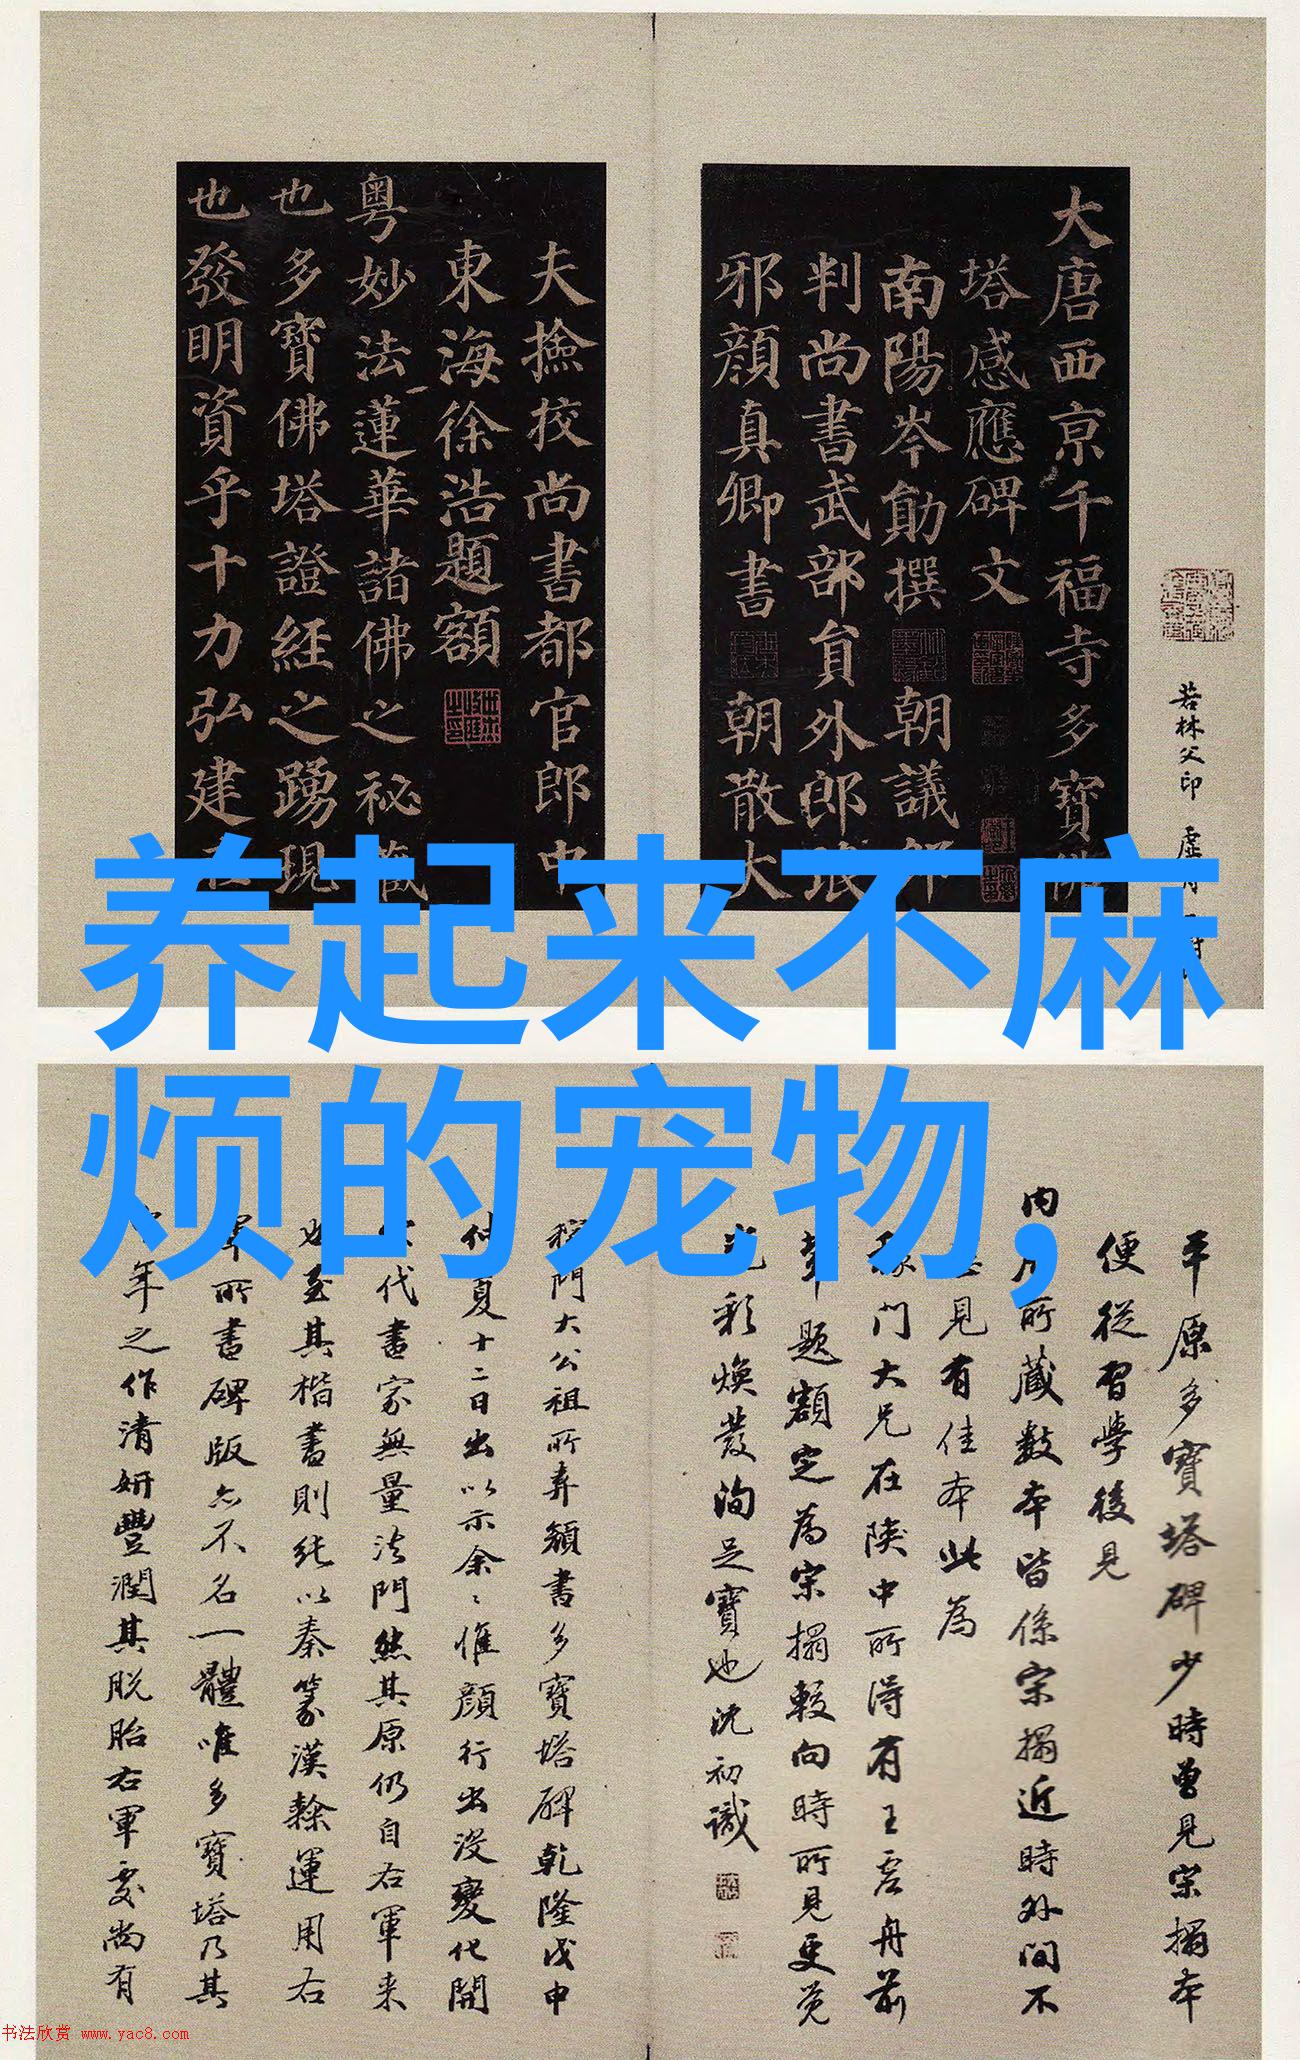 大唐西京千福寺多寶佛
塔感應碑文
南陽岑勛撰 朝議郎
判尚書武部員外郎琅
邪顏真卿書 朝散大
夫撿挍尚書都官郎中
東海徐浩題額
粵妙法蓮華諸佛之祕藏
也多寶佛塔證經之踴現
也發明資乎十力弘建在
若林父印
养起来不麻
烦的宠物,
平原多寶塔碑少時曾見宗搨本
便從習學後見
內府所藏數本皆係宗搨近時外間不
見有佳本此為
稼門大兄在陝中所得有王虛舟前
輩題額定為宗搨較向時所見更覺
光彩煥發洵足寶也沈初識
稼門大公祖所弆顏書多寶塔碑乾隆戊申
仲夏十二日出以示余〻惟顏行出沒變化開
代書家無量法門然其原仍自右軍来
至其楷書則純以秦篆漢隸運用右
軍所書碑版亦不名一體唯多寶塔乃其
年之作清妍豐潤其脫胎右軍處尚有
书法欣赏 www.yac8.com